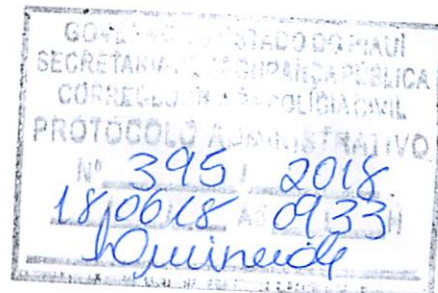 GOVERNO DO ESTADO DO PIAUÍ
SECRETARIA DE SEGURANÇA PÚBLICA
CORREGEDORIA DA POLÍCIA CIVIL
PROTOCOLO ADMINISTRATIVO
Nº 395 / 2018
18/06/18 ÀS 09:33 H